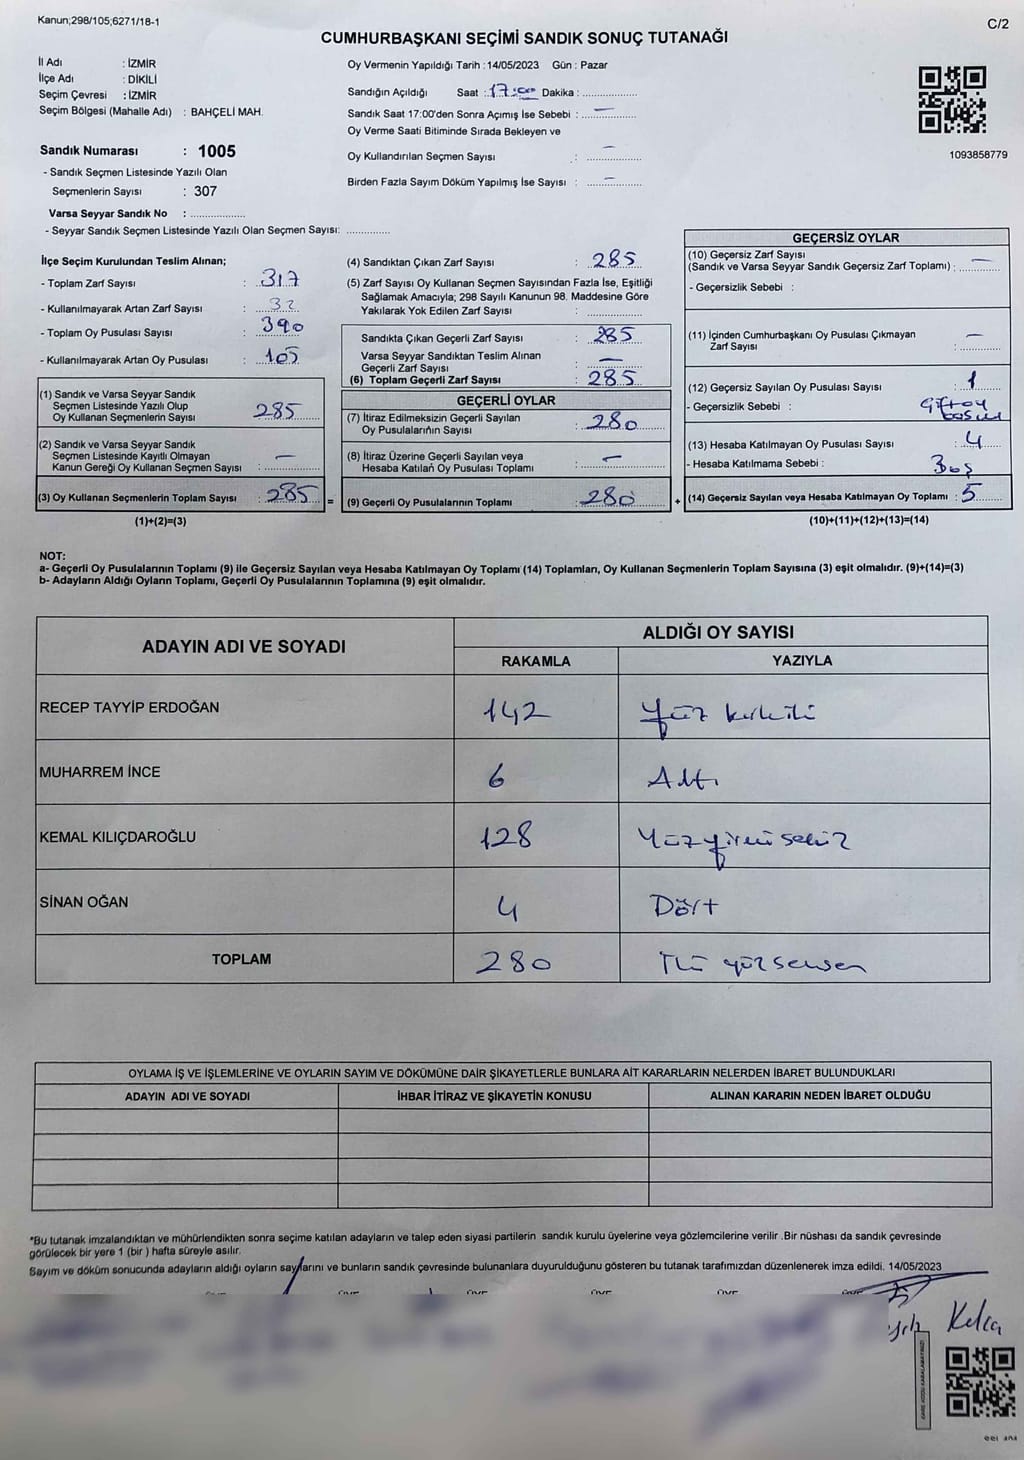 Kanun;298/105;6271/18-1
C/2
CUMHURBAŞKANI SEÇİMİ SANDIK SONUÇ TUTANAĞI
İl Adı : İZMİR
İlçe Adı : DİKİLİ
Seçim Çevresi : İZMİR
Seçim Bölgesi (Mahalle Adı) : BAHÇELİ MAH.
Sandık Numarası : 1005
- Sandık Seçmen Listesinde Yazılı Olan
Seçmenlerin Sayısı : 307
Varsa Seyyar Sandık No : ....................
- Seyyar Sandık Seçmen Listesinde Yazılı Olan Seçmen Sayısı: ................
Oy Vermenin Yapıldığı Tarih : 14/05/2023 Gün : Pazar
Sandığın Açıldığı Saat : 17:00 Dakika : ....................
Sandık Saat 17:00'den Sonra Açımış İse Sebebi : —
Oy Verme Saati Bitiminde Sırada Bekleyen ve
Oy Kullandırılan Seçmen Sayısı : —
Birden Fazla Sayım Döküm Yapılmış İse Sayısı : —
1093858779
İlçe Seçim Kurulundan Teslim Alınan;
- Toplam Zarf Sayısı : 317
- Kullanılmayarak Artan Zarf Sayısı : 32
- Toplam Oy Pusulası Sayısı : 390
- Kullanılmayarak Artan Oy Pusulası : 105
(1) Sandık ve Varsa Seyyar Sandık
Seçmen Listesinde Yazılı Olup
Oy Kullanan Seçmenlerin Sayısı : 285
(2) Sandık ve Varsa Seyyar Sandık
Seçmen Listesinde Kayıtlı Olmayan
Kanun Gereği Oy Kullanan Seçmen Sayısı : —
(3) Oy Kullanan Seçmenlerin Toplam Sayısı : 285
(1)+(2)=(3)
=
(4) Sandıktan Çıkan Zarf Sayısı : 285
(5) Zarf Sayısı Oy Kullanan Seçmen Sayısından Fazla İse, Eşitliği
Sağlamak Amacıyla; 298 Sayılı Kanunun 98. Maddesine Göre
Yakılarak Yok Edilen Zarf Sayısı : ....................
Sandıkta Çıkan Geçerli Zarf Sayısı : 285
Varsa Seyyar Sandıktan Teslim Alınan
Geçerli Zarf Sayısı : —
(6) Toplam Geçerli Zarf Sayısı : 285
GEÇERLİ OYLAR
(7) İtiraz Edilmeksizin Geçerli Sayılan
Oy Pusulalarıñın Sayısı : 280
(8) İtiraz Üzerine Geçerli Sayılan veya
Hesaba Katılan Oy Pusulası Toplamı : —
(9) Geçerli Oy Pusulalarının Toplamı : 280
+
GEÇERSİZ OYLAR
(10) Geçersiz Zarf Sayısı
(Sandık ve Varsa Seyyar Sandık Geçersiz Zarf Toplamı) : —
- Geçersizlik Sebebi :
(11) İçinden Cumhurbaşkanı Oy Pusulası Çıkmayan
Zarf Sayısı : —
(12) Geçersiz Sayılan Oy Pusulası Sayısı : 1
- Geçersizlik Sebebi : Çift oy
(13) Hesaba Katılmayan Oy Pusulası Sayısı : 4
- Hesaba Katılmama Sebebi : Boş
(14) Geçersiz Sayılan veya Hesaba Katılmayan Oy Toplamı : 5
(10)+(11)+(12)+(13)=(14)
NOT:
a- Geçerli Oy Pusulalarının Toplamı (9) ile Geçersiz Sayılan veya Hesaba Katılmayan Oy Toplamı (14) Toplamları, Oy Kullanan Seçmenlerin Toplam Sayısına (3) eşit olmalıdır. (9)+(14)=(3)
b- Adayların Aldığı Oyların Toplamı, Geçerli Oy Pusulalarının Toplamına (9) eşit olmalıdır.
ADAYIN ADI VE SOYADI
ALDIĞI OY SAYISI
RAKAMLA YAZIYLA
RECEP TAYYİP ERDOĞAN 142 Yüz kırkiki
MUHARREM İNCE 6 Altı
KEMAL KILIÇDAROĞLU 128 Yüzyirmi sekiz
SİNAN OĞAN 4 Dört
TOPLAM 280 İki yüz seksen
OYLAMA İŞ VE İŞLEMLERİNE VE OYLARIN SAYIM VE DÖKÜMÜNE DAİR ŞİKAYETLERLE BUNLARA AİT KARARLARIN NELERDEN İBARET BULUNDUKLARI
ADAYIN ADI VE SOYADI İHBAR İTİRAZ VE ŞİKAYETİN KONUSU ALINAN KARARIN NEDEN İBARET OLDUĞU
*Bu tutanak imzalandıktan ve mühürlendikten sonra seçime katılan adayların ve talep eden siyasi partilerin sandık kurulu üyelerine veya gözlemcilerine verilir .Bir nüshası da sandık çevresinde
görülecek bir yere 1 (bir ) hafta süreyle asılır.
Sayım ve döküm sonucunda adayların aldığı oyların sayılarını ve bunların sandık çevresinde bulunanlara duyurulduğunu gösteren bu tutanak tarafımızdan düzenlenerek imza edildi. 14/05/2023